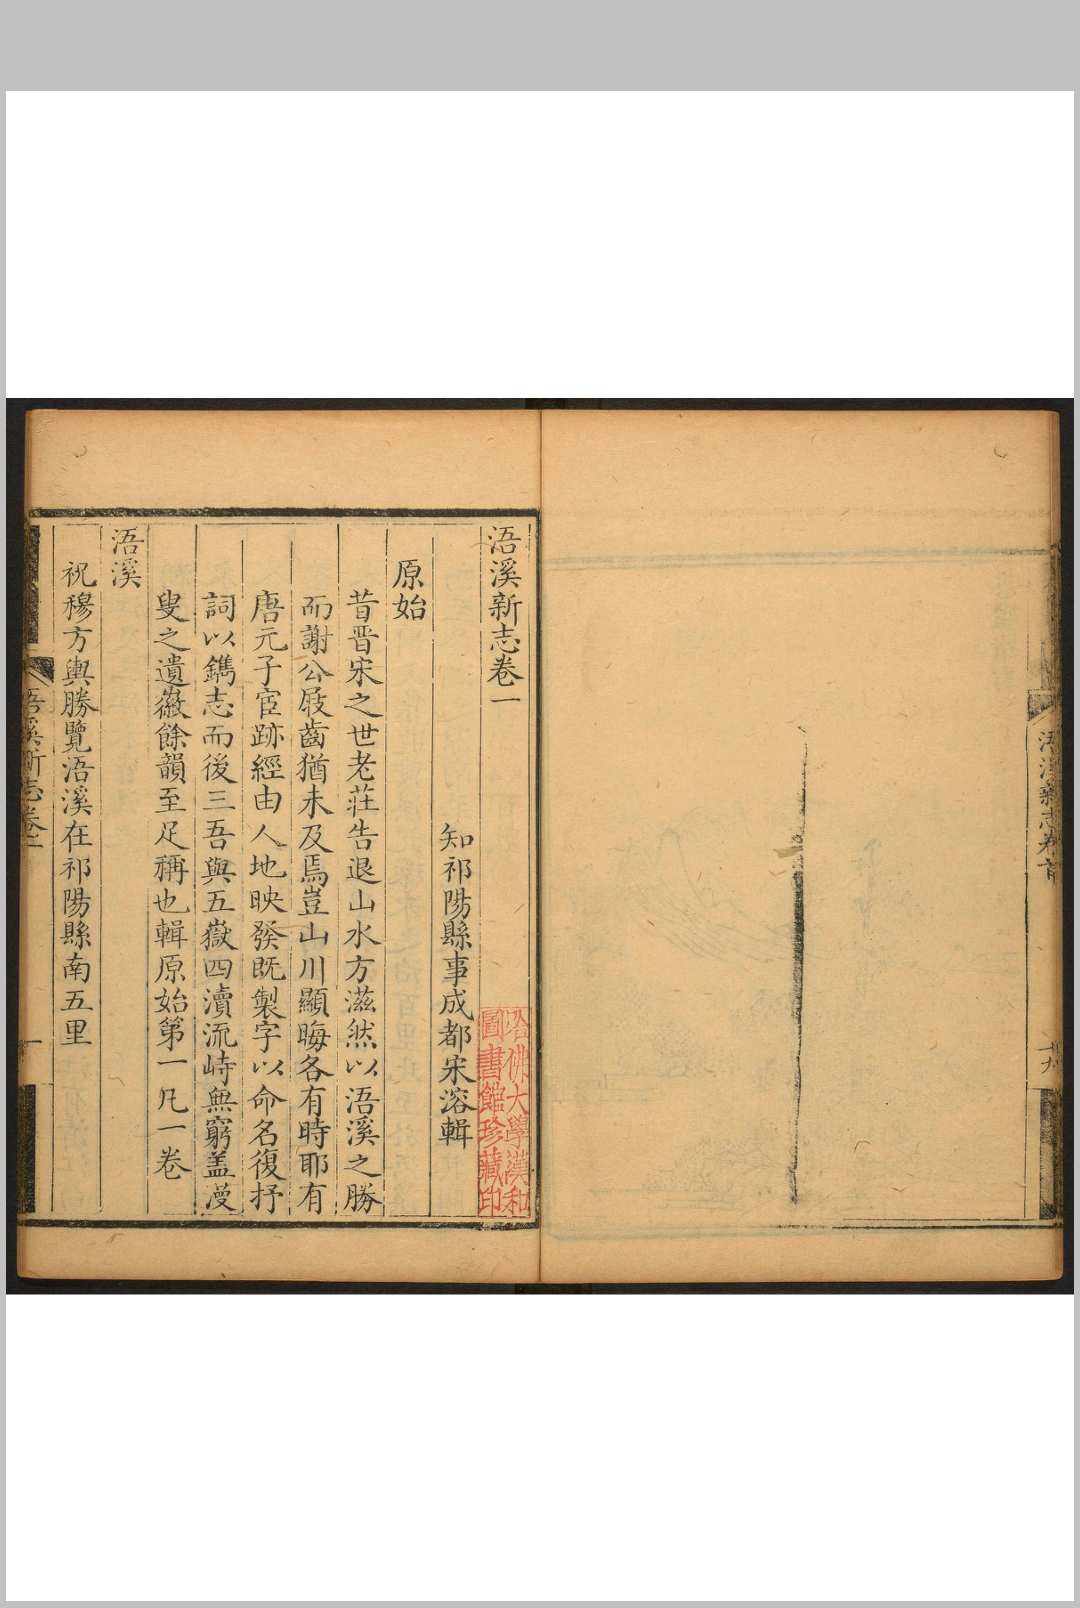 浯溪新志卷首
廿九
浯溪新志卷一
知祁陽縣事成都宋溶輯
哈佛大學漢和
圖書館珍藏印
原始
昔晋宋之世老莊告退山水方滋然以浯溪之勝
而謝公屐齒猶未及焉豈山川顯晦各有時耶有
唐元子宦跡經由人地映發既製字以命名復抒
詞以鐫志而後三吾與五嶽四瀆流峙無窮盖漫
叟之遺徽餘韻至足稱也輯原始第一凡一卷
浯溪
祝穆方輿勝覽浯溪在祁陽縣南五里
浯溪新志卷一
一